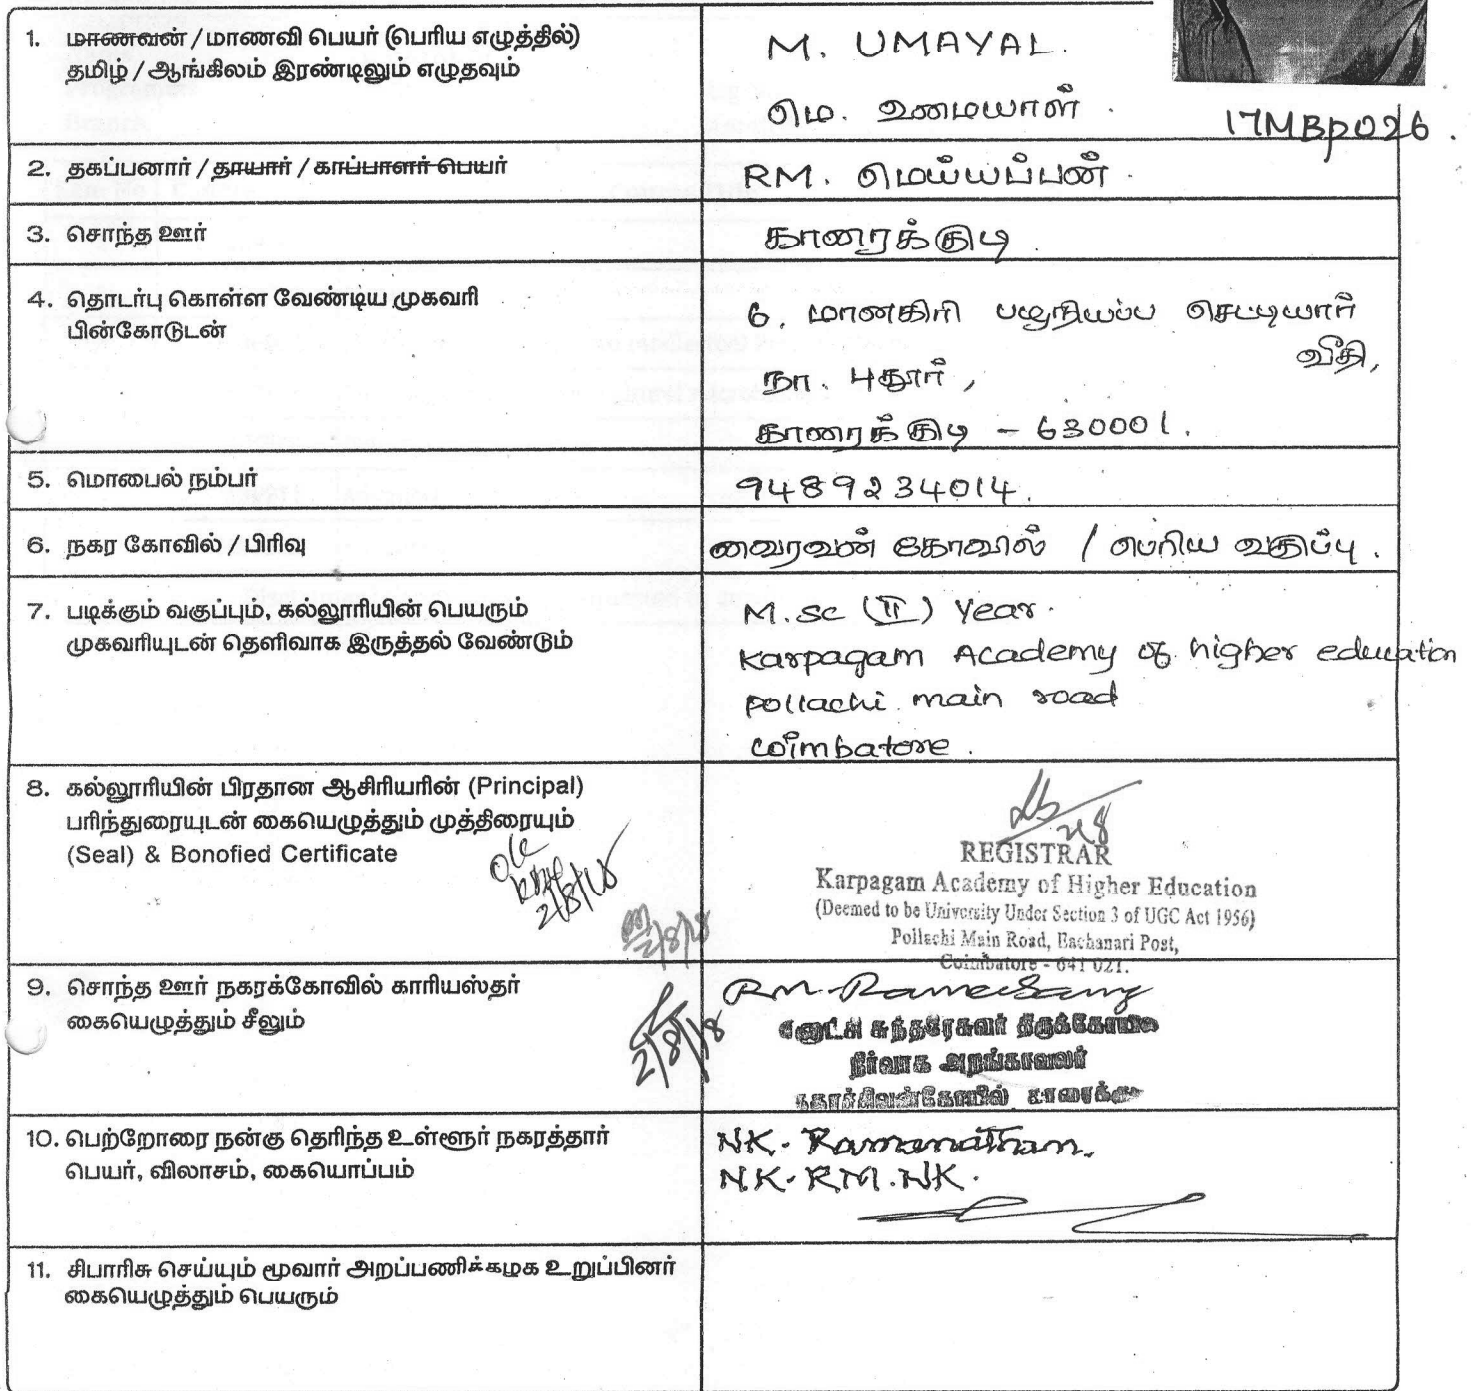 1. மாணவன் / மாணவி பெயர் (பெரிய எழுத்தில்)
தமிழ் / ஆங்கிலம் இரண்டிலும் எழுதவும்
M. UMAYAL.
மெ. உமையாள் .
17MBP026 .
2. தகப்பனார் / தாயார் / காப்பாளர் பெயர்
RM. மெய்யப்பன் .
3. சொந்த ஊர்
காரைக்குடி .
4. தொடர்பு கொள்ள வேண்டிய முகவரி
பின்கோடுடன்
6. மானகிரி பழநியப்ப செட்டியார்
வீதி,
நா. புதூர் ,
காரைக்குடி - 630001.
5. மொபைல் நம்பர்
9489234014.
6. நகர கோவில் / பிரிவு
வைரவன் கோவில் / பெரிய வகுப்பு .
7. படிக்கும் வகுப்பும், கல்லூரியின் பெயரும்
முகவரியுடன் தெளிவாக இருத்தல் வேண்டும்
M.sc (II) Year.
Karpagam Academy of higher education
pollachi main road
coimbatore .
8. கல்லூரியின் பிரதான ஆசிரியரின் (Principal)
பரிந்துரையுடன் கையெழுத்தும் முத்திரையும்
(Seal) & Bonofied Certificate
2/8/18
REGISTRAR
Karpagam Academy of Higher Education
(Deemed to be University Under Section 3 of UGC Act 1956)
Pollachi Main Road, Eachanari Post,
Coimbatore - 641 021.
9. சொந்த ஊர் நகரக்கோவில் காரியஸ்தர்
கையெழுத்தும் சீலும்
2/8/18
சுந்தரேசுவர்
நிர்வாக அறங்காவலர்
10. பெற்றோரை நன்கு தெரிந்த உள்ளூர் நகரத்தார்
பெயர், விலாசம், கையொப்பம்
NK. Ramanathan.
NK. RM. NK.
11. சிபாரிசு செய்யும் மூவார் அறப்பணிக்கழக உறுப்பினர்
கையெழுத்தும் பெயரும்